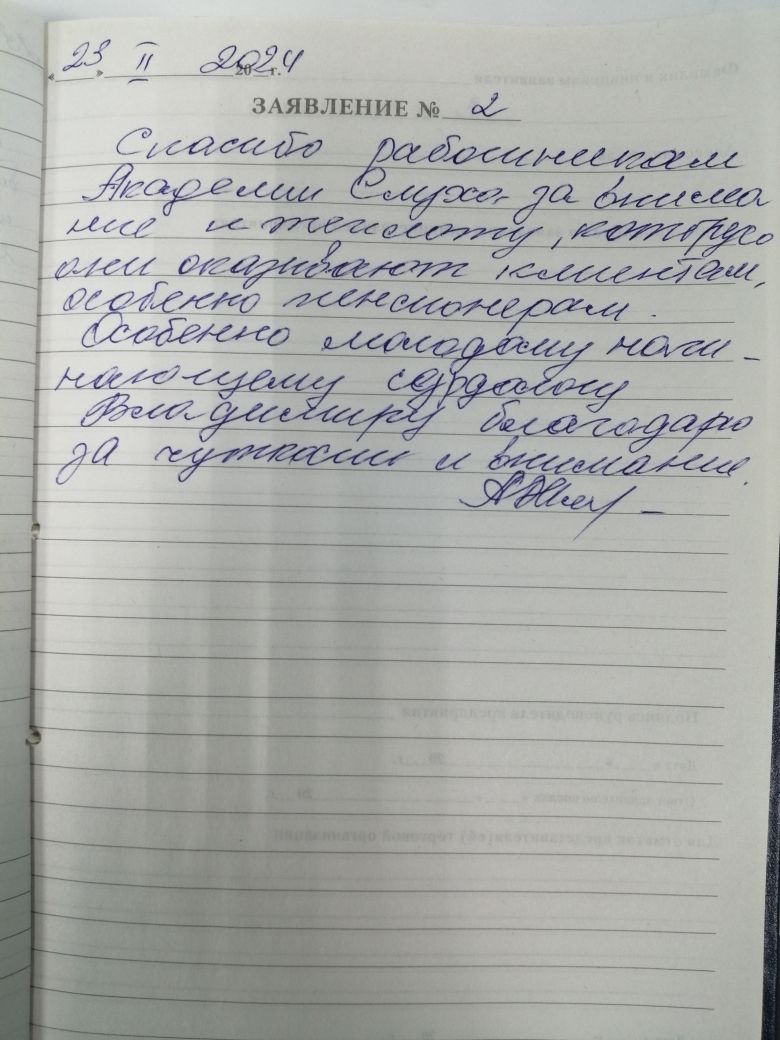 «23» II 2024 г.
ЗАЯВЛЕНИЕ № 2
Спасибо работникам
Академии Слуха за внима
ние и теплоту, которую
они оказывают клиентам,
особенно пенсионерам.
Особенно молодому начи-
нающему сурдологу
Владимиру благодарю
за чуткость и внимание.